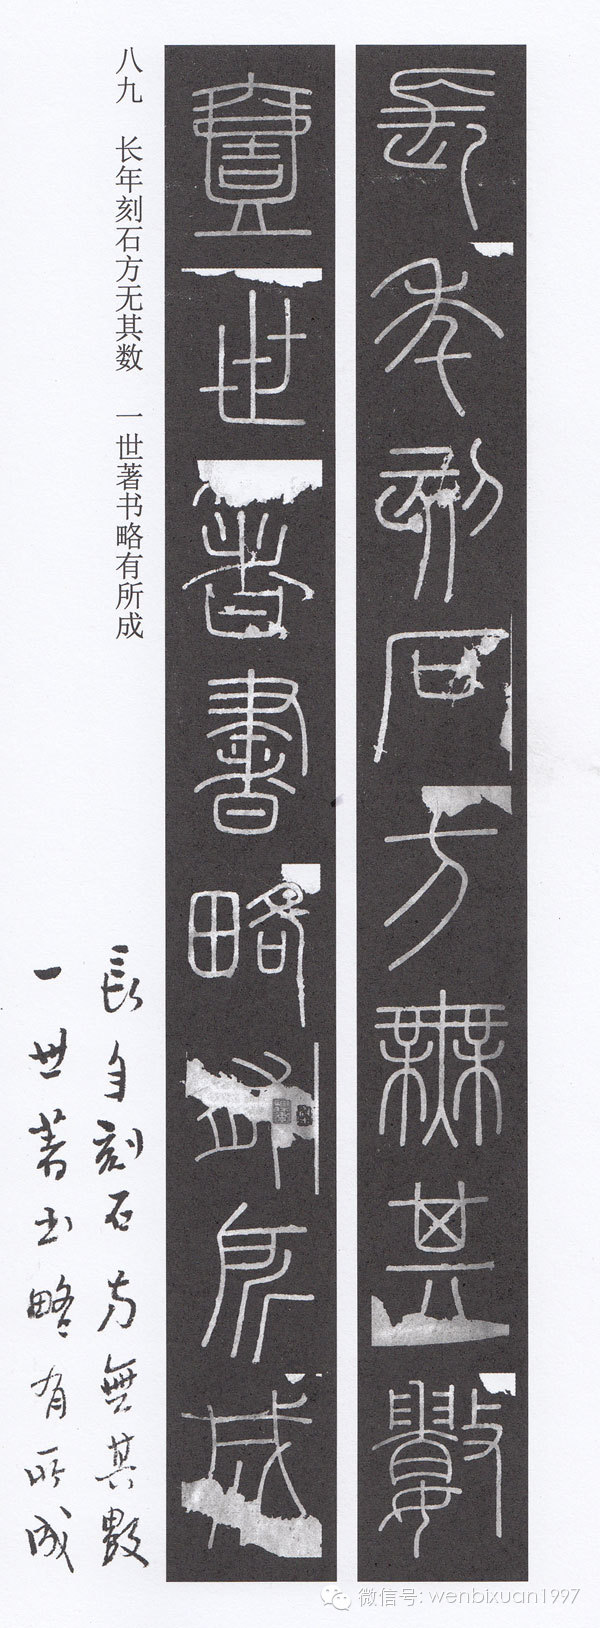 長年刻石方無其數
壹世著書略有所成
八九 长年刻石方无其数 一世著书略有所成
長年刻石方無其數
一世著书略有所成
微信号: wenbixuan1997